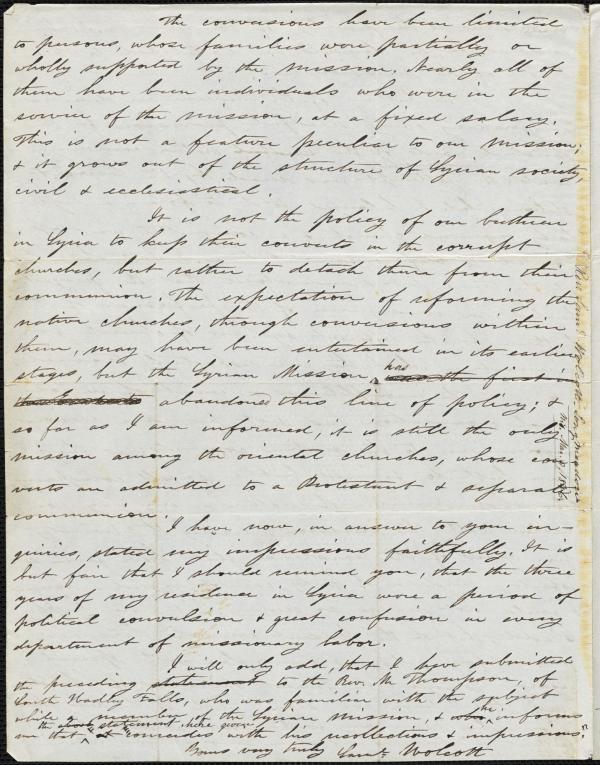 The conversions have been limited
to persons, whose families were partially or
wholly supported by the mission. Nearly all of
them have been individuals who were in the
service of the mission, at a fixed salary.
This is not a feature peculiar to our mission;
& it grows out of the structure of Syrian society,
civil & ecclesiastical.
It is not the policy of our brethren
in Syria to keep their converts in the corrupt
churches, but rather to detach them from their
communion. The expectation of reforming the
native churches, through conversions within
them, may have been entertained in its earlier
stages, but the Syrian Mission has was the first in
abandoned this line of policy; &
so far as I am informed, it is still the only
mission among the oriental churches, whose con
verts are admitted to a Protestant & separate
communion.
I have now, in answer to your in-
quiries, stated my impressions faithfully. It is
but fair that I should remind you, that the three
years of my residence in Syria were a period of
political convulsion & great confusion in every
department of missionary labor.
I will only add, that I have submitted
the preceding statement to the Rev. Mr Thompson, of
South Hadley Falls, who was familiar with the subject
while a member of the Syrian mission, & who he informs
me that the above statement, here given it coincides with his recollections & impressions.
Yours very truly Saml. Wolcott
Rev. Saml. Wolcott Longmeadow